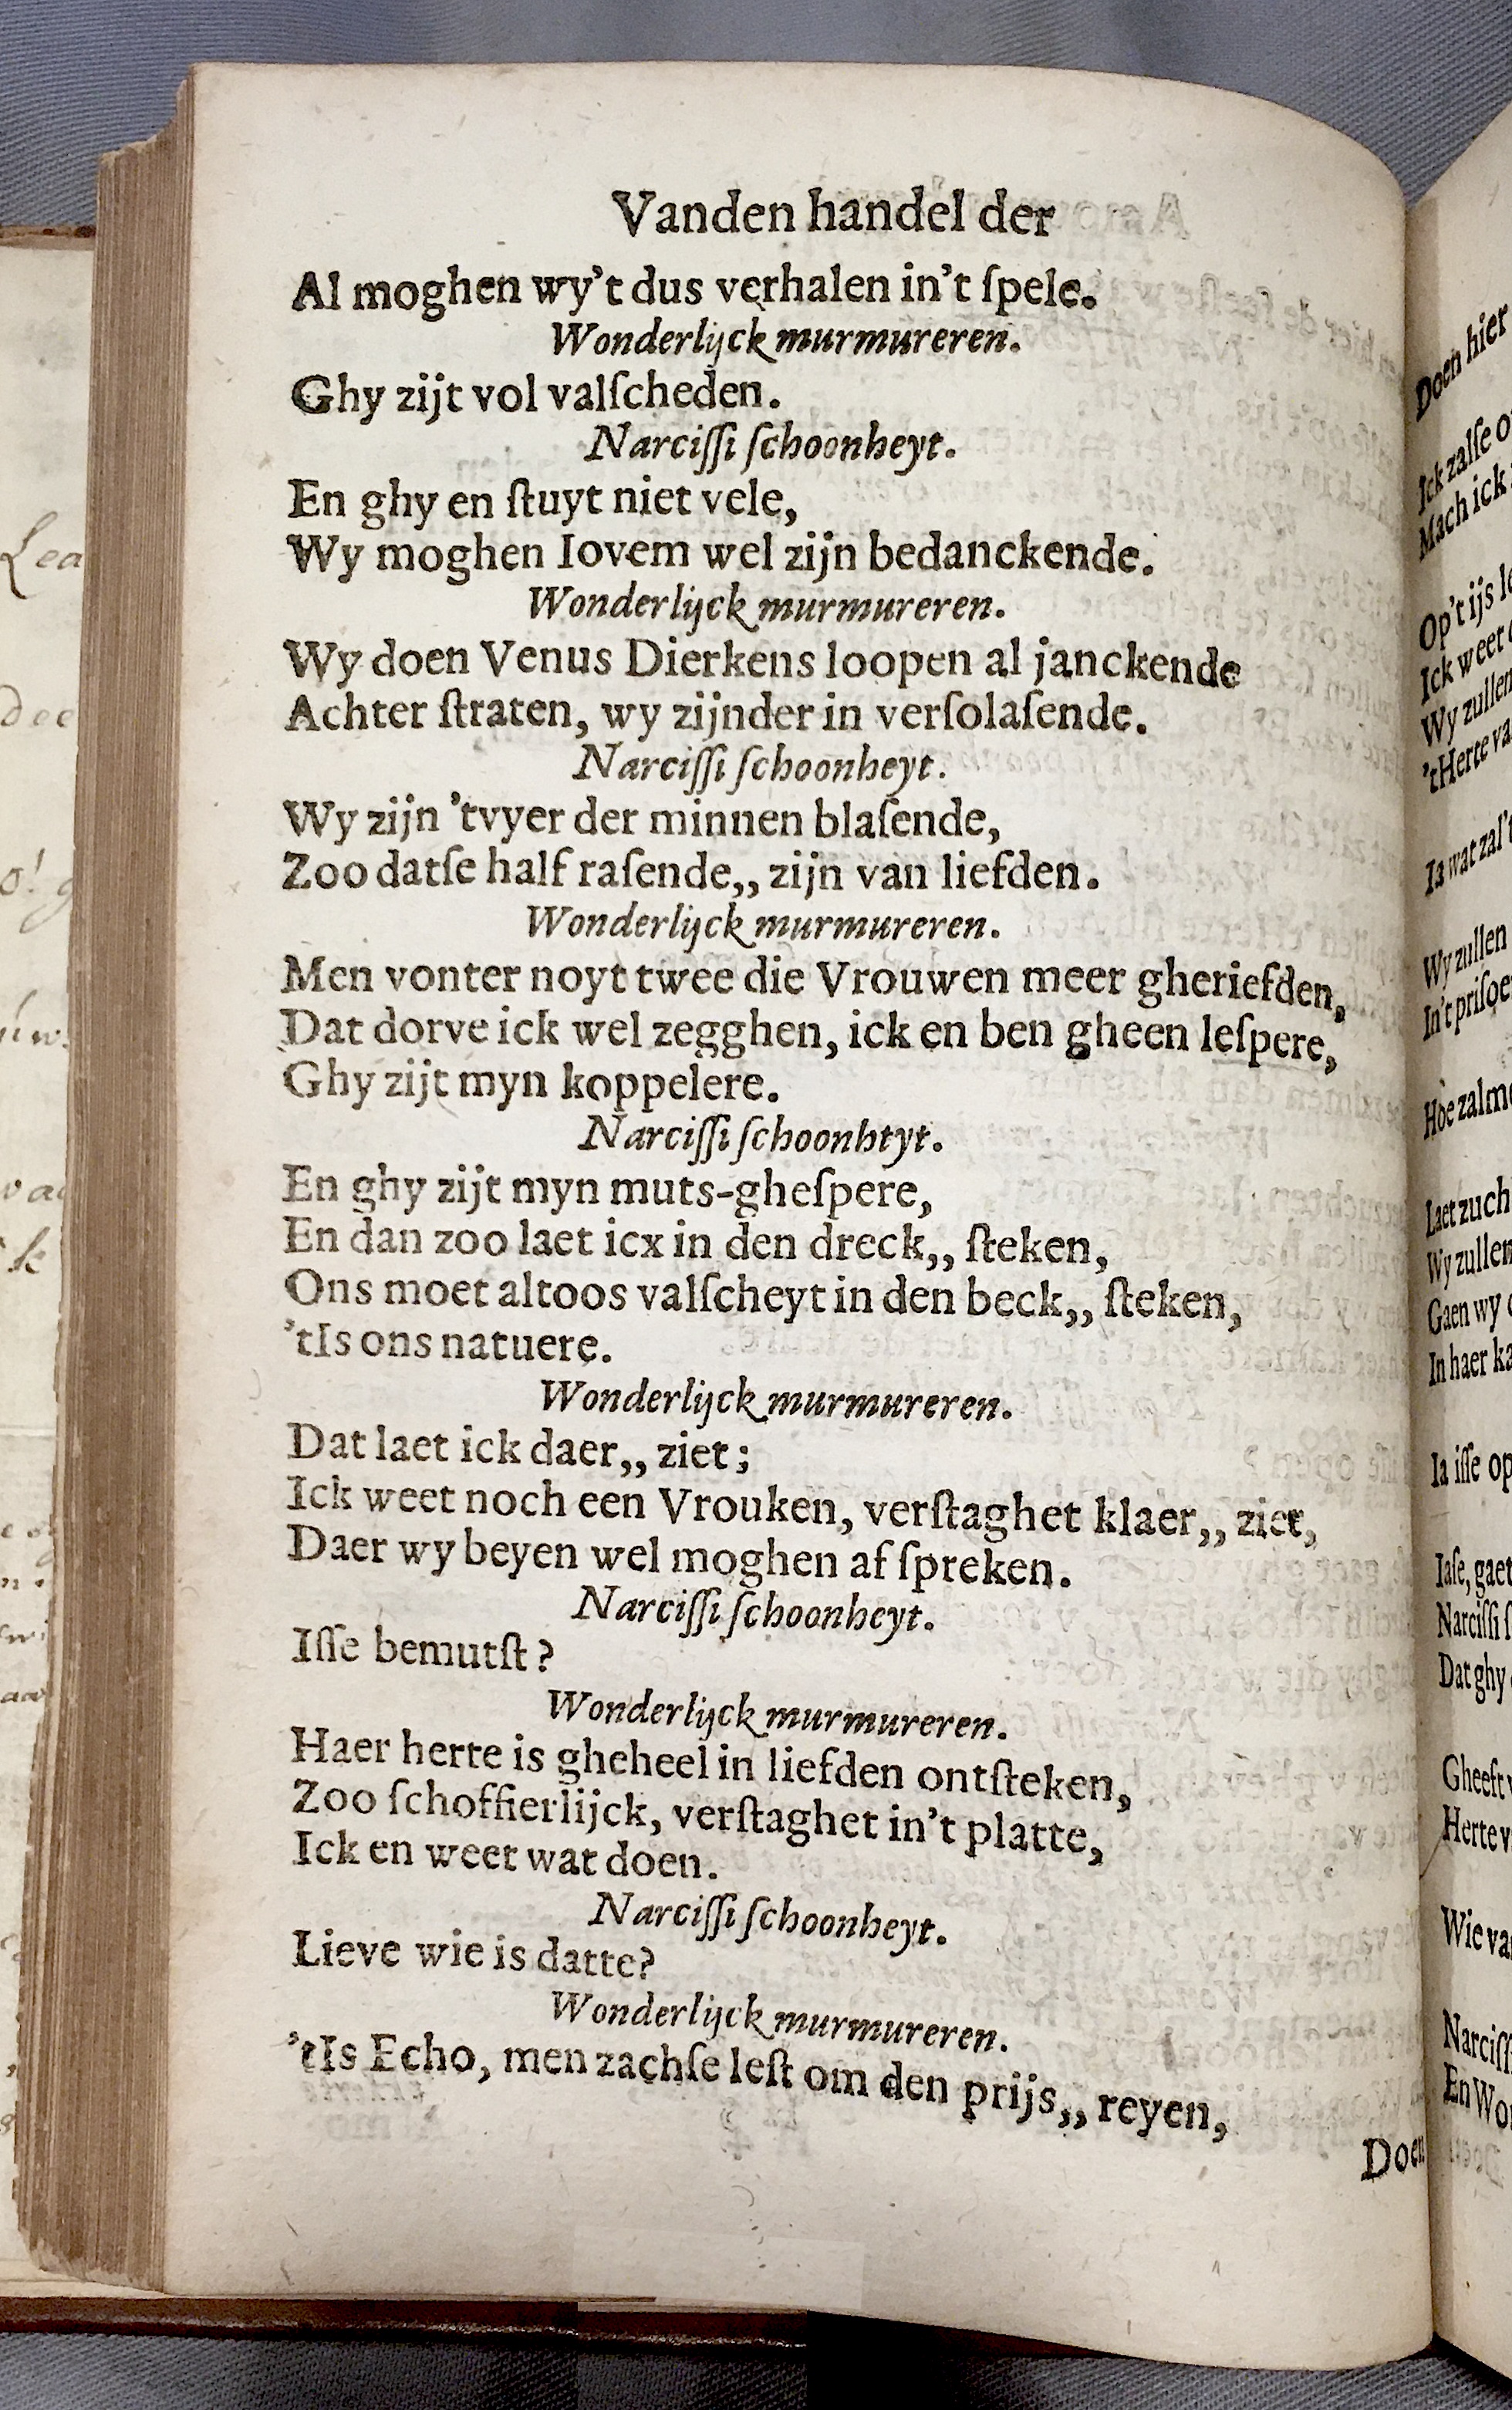 Vanden handel der
Al moghen wy't dus verhalen in't ſpele.
Wonderlijck murmureren.
Ghy zijt vol valſcheden.
Narciſſi ſchoonheyt.
En ghy en ſtuyt niet vele,
Wy moghen Iovem wel zijn bedanckende.
Wonderlijck murmureren.
Wy doen Venus Dierkens loopen al janckende
Achter ſtraten, wy zijnder in verſolaſende.
Narciſſi ſchoonheyt.
Wy zijn 'tvyer der minnen blaſende,
Zoo datſe half raſende,, zijn van liefden.
Wonderlijck murmureren.
Men vonter noyt twee die Vrouwen meer gheriefden,
Dat dorve ick wel zegghen, ick en ben gheen leſpere,
Ghy zijt myn koppelere.
Narciſſi ſchoonhtyt.
En ghy zijt myn muts-gheſpere,
En dan zoo laet icx in den dreck,, ſteken,
Ons moet altoos valſcheyt in den beck,, ſteken,
'tIs ons natuere.
Wonderlijck murmureren.
Dat laet ick daer,, ziet;
Ick weet noch een Vrouken, verſtaghet klaer,, ziet,
Daer wy beyen wel moghen af ſpreken.
Narciſſi ſchoonheyt.
Iſſe bemutſt?
Wonderlijck murmureren.
Haer herte is gheheel in liefden ontſteken,
Zoo ſchoffierlijck, verſtaghet in't platte,
Ick en weet wat doen.
Narciſſi ſchoonheyt.
Lieve wie is datte?
Wonderlijck murmureren.
'tIs Echo, men zachſe leſt om den prijs,, reyen,
Doen
Doen hier
Ick zalſe
Mach ick
Op't ijs
Ick weet
Wy zullen
'tHerte
Ia wat zal't
Wy zullen
In't
Hoe
Laet
Wy zullen
Gaen wy
In haer
Ia iſſe op
Iaſe, gaet
Narciſſi
Dat ghy
Gheeft
Herte
Wie
En